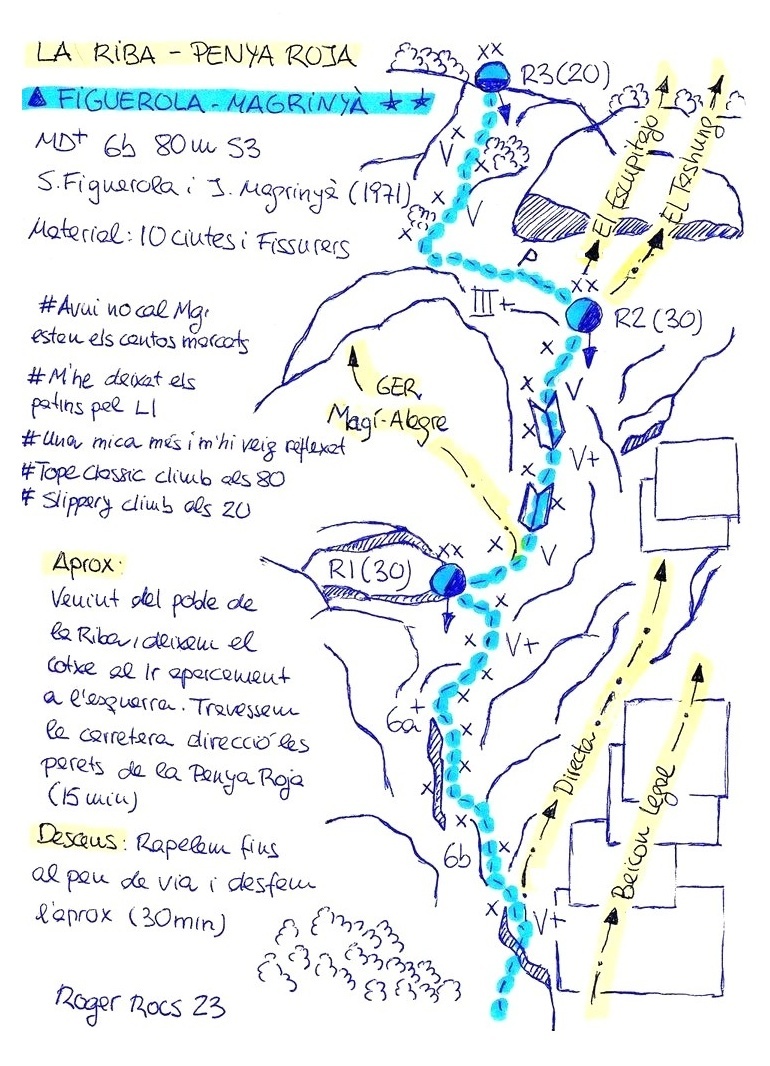 LA RIBA - PENYA ROJA
FIGUEROLA - MAGRINYÀ
MD+ 6b 80m S3
S. Figuerola i J. Magrinyà (1971)
Material: 10 cintes i Fissurers
# Avui no cal Mg,
esten els cantos marcats
# M'he deixat els
patins pel L1
# Una mica més i m'hi veig reflexat
# Tope Classic climb als 80
# Slippery climb als 20
Aprox:
Venint del poble de
la Riba, deixem el
cotxe al 1r aparcament
a l'esquerra. Travessem
la carretera direcció les
parets de la Penya Roja
(15 min)
Descens: Rapelem fins
al peu de via i desfem
l'aprox (30min)
Roger Rocs 23
XX
R3 (20)
V
V
P
III+
XX
R2 (30)
El Escupitajo
El Tashunp
V
V+
GER
Magí-Alegre
V
XX
R1 (30)
V+
6a+
6b
V+
Directa
Beicon Legal